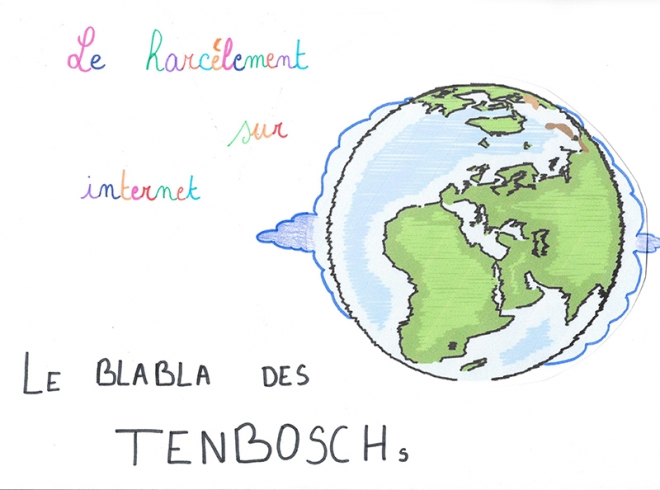 Le harcèlement
sur
internet
LE BLABLA DES
TENBOSCHs